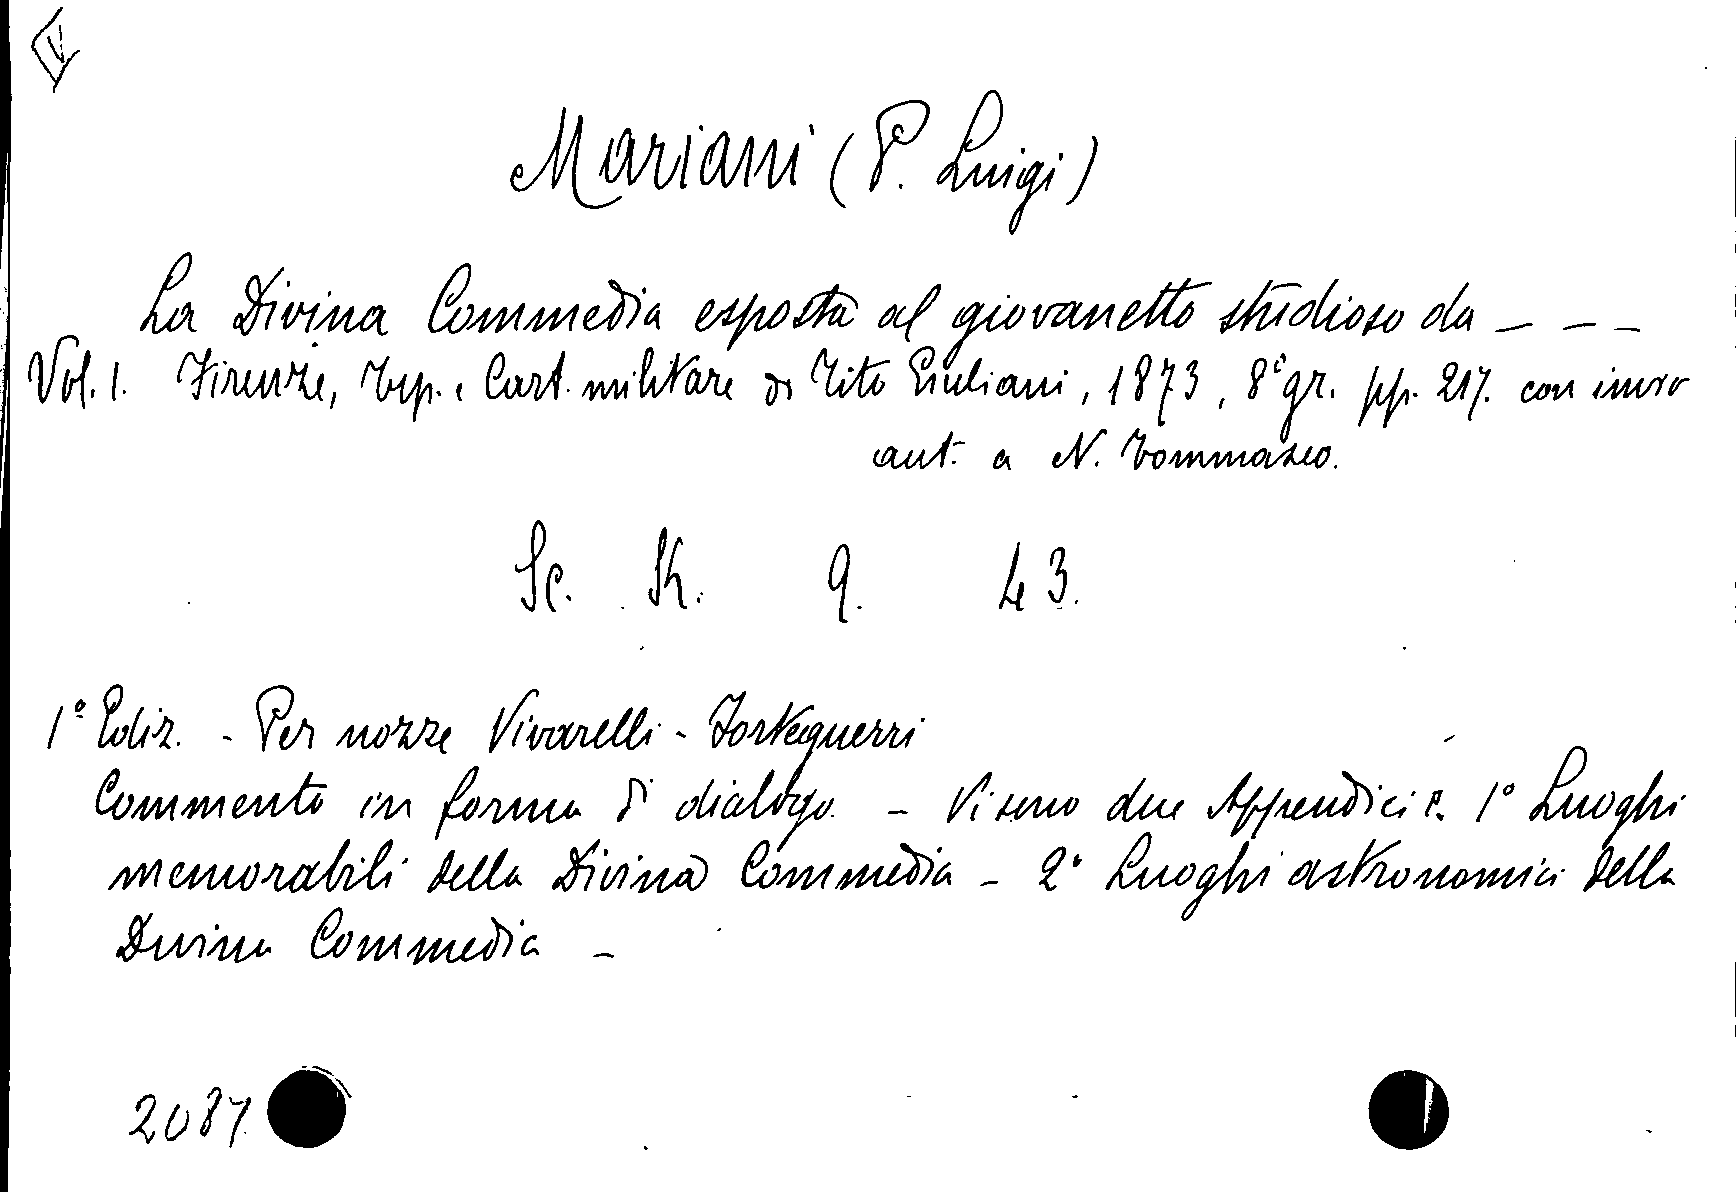 Mariani (P. Luigi)
La Divina Commedia esposta al giovanetto studioso da _ _ _
Vol. I. Firenze, Tip. e Cart. militare di Tito Giuliani, 1873, 8° gr. pp. 217. con invio
aut. a N. Tommaseo.
Sc. K. 9. 43.
1° Ediz. - Per nozze Vivarelli - Forteguerri
Commento in forma di dialogo. - Vi sono due Appendici 1° Luoghi
memorabili della Divina Commedia - 2° Luoghi astronomici della
Divina Commedia -
2087